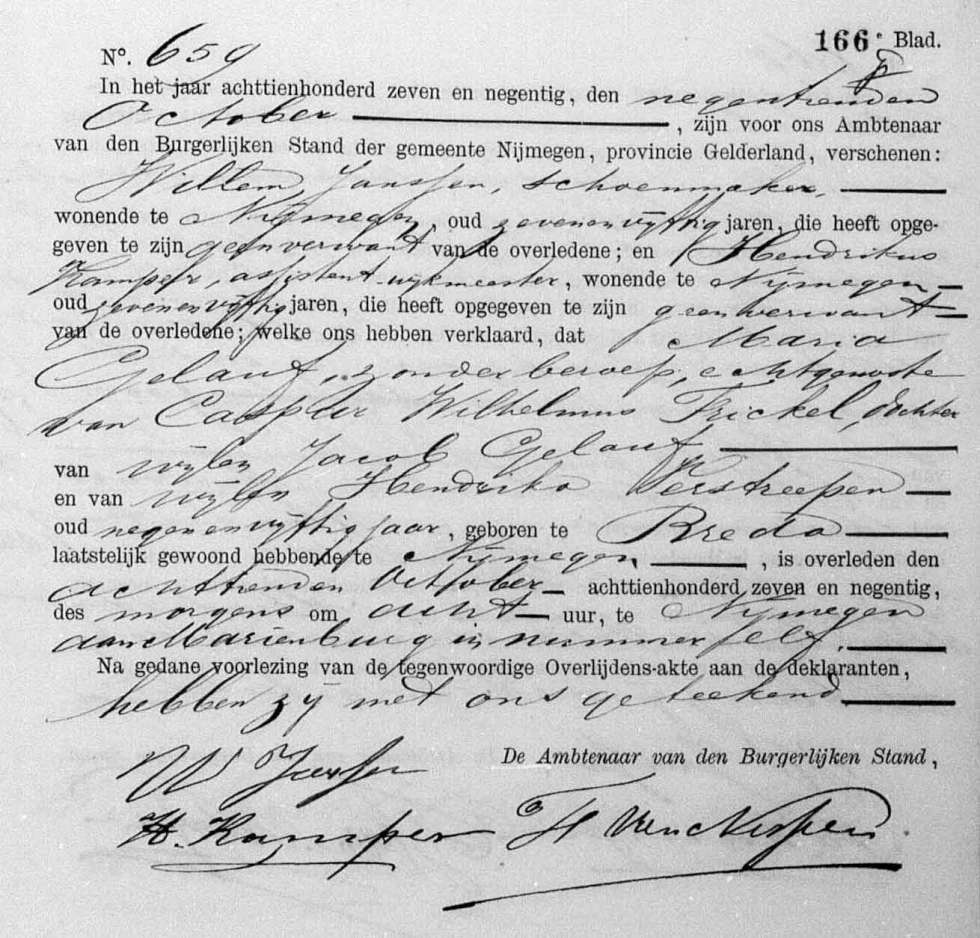 166e Blad.
No. 659
In het jaar achttienhonderd zeven en negentig, den negentienden
October, zijn voor ons Ambtenaar
van den Burgerlijken Stand der gemeente Nijmegen, provincie Gelderland, verschenen:
Willem Janssen, schoenmaker,
wonende te Nijmegen, oud zevenenvijftig jaren, die heeft opge-
geven te zijn geen verwant van de overledene; en Hendrikus
Kamper, assistent wijkmeester, wonende te Nijmegen
oud zevenenvijftig jaren, die heeft opgegeven te zijn geen verwant
van de overledene; welke ons hebben verklaard, dat Maria
Gelauf, zonder beroep, echtgenoote
van Casper Wilhelmus Frickel, dochter
van wijlen Jacob Gelauf
en van wijlen Hendrika Verstreepen
oud negenenvijftig jaar, geboren te Breda
laatstelijk gewoond hebbende te Nijmegen, is overleden den
achttienden October achttienhonderd zeven en negentig,
des morgens om acht uur, te Nijmegen
aan Mariënburg in nummer elf.
Na gedane voorlezing van de tegenwoordige Overlijdens-akte aan de deklaranten,
hebben zij met ons geteekend
De Ambtenaar van den Burgerlijken Stand,
W Janssen
H. Kamper